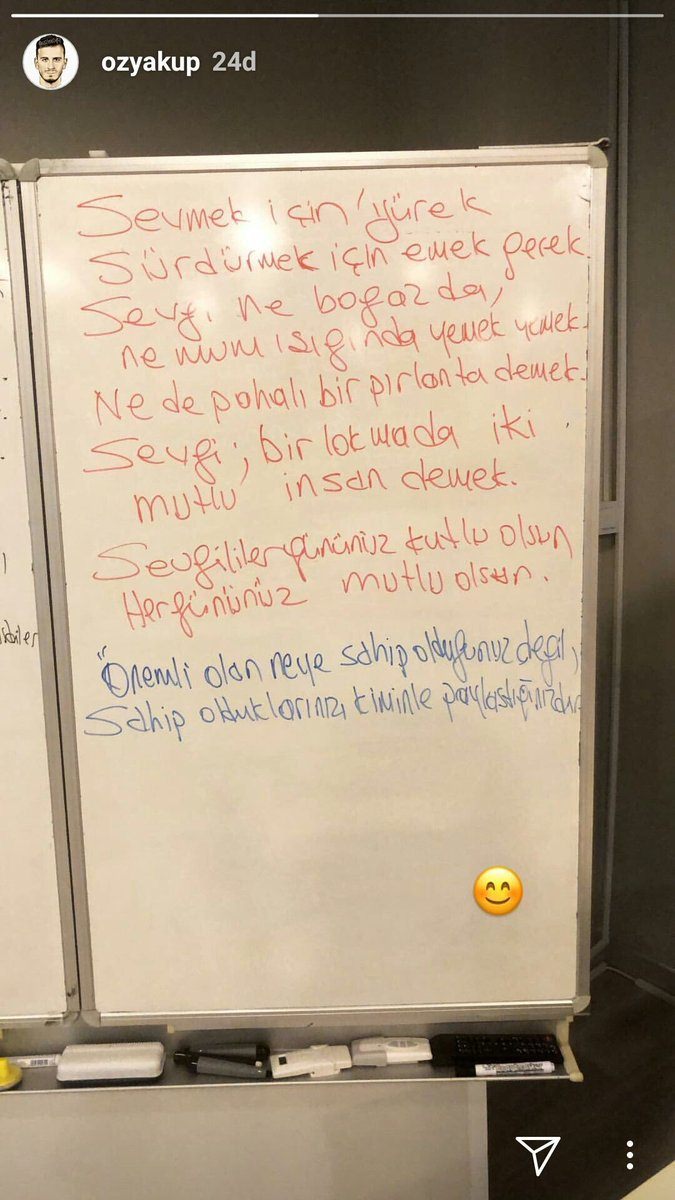 ozyakup 24d
Sevmek için yürek
Sürdürmek için emek gerek.
Sevgi ne bogazda,
ne mum ısıgında yemek yemek.
Ne de pahalı bir pırlanta demek.
Sevgi; bir lokmada iki
mutlu insan demek.
Sevgililer gününüz kutlu olsun
Hergününüz mutlu olsun.
"Önemli olan neye sahip olduğunuz değil,
Sahip olduklarınızı kiminle paylastığınızdır